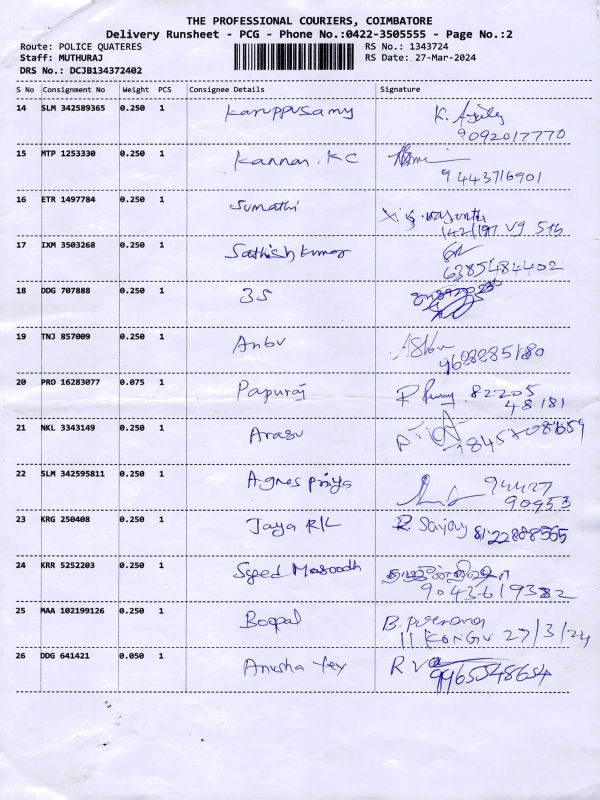 THE PROFESSIONAL COURIERS, COIMBATORE
Delivery Runsheet - PCG - Phone No.:0422-3505555 - Page No.:2
Route: POLICE QUATERES RS No.: 1343724
Staff: MUTHURAJ RS Date: 27-Mar-2024
DRS No.: DCJB134372402
S No Consignment No Weight PCS Consignee Details Signature
14 SLM 342589365 0.250 1 Karuppusamy K.
9092017770
15 MTP 1253330 0.250 1 Kannan. KC
9443716901
16 ETR 1497784 0.250 1 Sumathi
142/197 V9 5th
17 IXM 3503268 0.250 1 Sathish Kumar
6385484402
18 DDG 707888 0.250 1 3S
19 TNJ 857009 0.250 1 Anbu
9688885180
20 PRO 16283077 0.075 1 Papuraj 82205
48181
21 NKL 3343149 0.250 1 Arasu
22 SLM 342595811 0.250 1 Agnes priya 94427
90953
23 KRG 250408 0.250 1 Jaya R/L R Sanjay 8122888565
24 KRR 5252203 0.250 1 Syed Masoodh
9043619382
25 MAA 102199126 0.250 1 Boopal B.
11 KONGU 27/3/24
26 DDG 641421 0.050 1 Anusha tex
9965548654